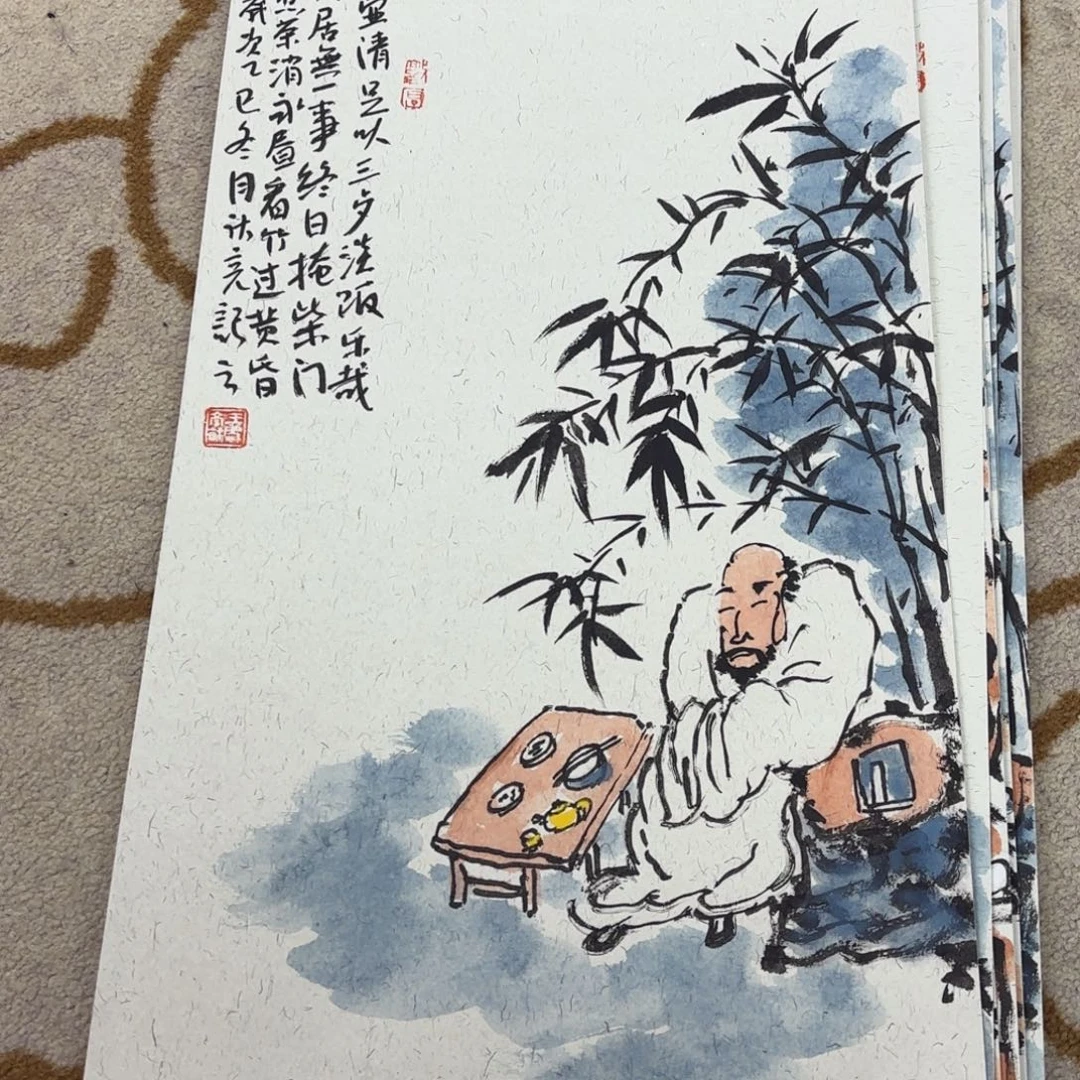 清足以三夕淡饭乐哉
居無一事终日掩柴门
茶消永昼看竹过黄昏
岁次乙巳冬月许亮記云